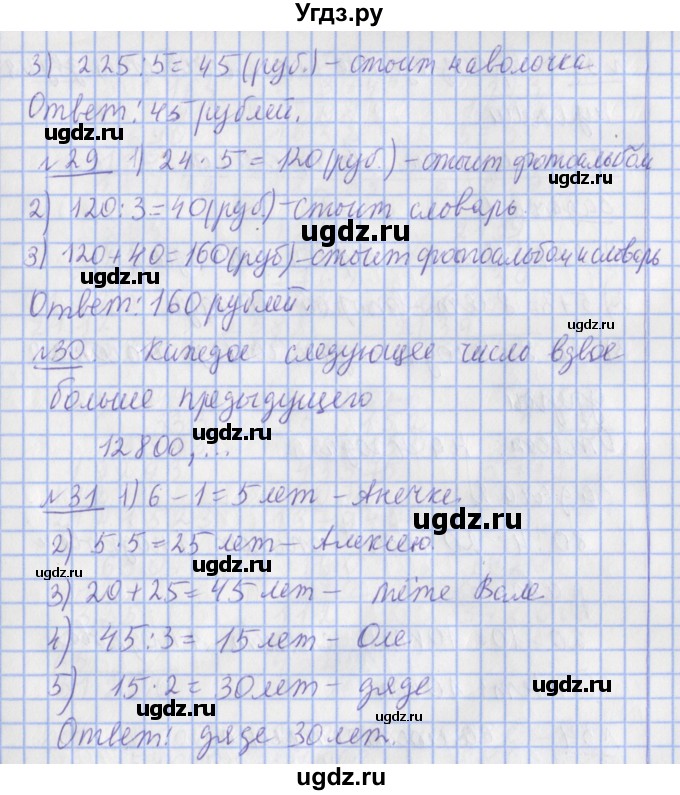 Угдз.ру
3) 225:5=45(руб.)-стоит наволочка
Ответ: 45 рублей.
ugdz.ru
ugdz.ru
№29 1) 24·5=120(руб.)-стоит фотоальбом
ugdz.ru
2) 120:3=40(руб.)-стоит словарь.
ugdz.ru
3) 120+40=160(руб)-стоит фотоальбом и словарь
Ответ: 160 рублей.
ugdz.ru
ugdz.ru
№30. Каждое следующее число вдвое
больше предыдущего
ugdz.ru
12800,...
№31 1) 6-1=5 лет - Анечке.
ugdz.ru
2) 5·5=25 лет - Алексею.
ugdz.ru
ugdz.ru
3) 20+25=45 лет - тёте Вале
4) 45:3=15 лет - Оле
5) 15·2=30 лет - дяде
ugdz.ru
ugdz.ru
ugdz.ru
Ответ: дяде 30 лет.
ugdz.ru